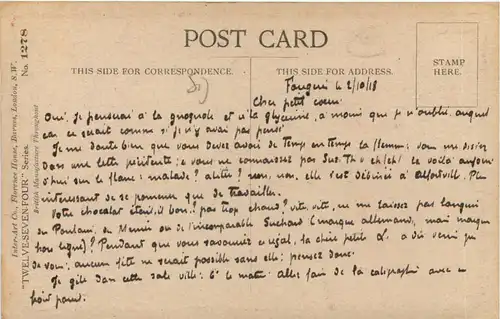 POST CARD
THIS SIDE FOR CORRESPONDENCE.
THIS SIDE FOR ADDRESS.
STAMP
HERE.
Inter-Art Co., Florence House, Barnes, London, S.W.
"TWELVESEVEN-FOUR" Series. No. 1278
British Manufacture Throughout
le 2/10/18
Cher petit cœur
Oui, je penserai à la gnognole et à la glycérine, à moins que je n'oublie, auquel
cas ce serait comme si je n'y avais pas pensé.
Je me doute bien que vous devez avoir de temps en temps la flemme: vous me disiez
dans une lettre précédente: vous ne connaissez pas eh! eh! la voilà aujour
d'hui sur le flanc: malade? alitée? non, non, elle s'est débinée à Alfortville. Plus
intéressant de se promener que de travailler.
Votre chocolat était-il bon? pas trop chaud? vite, vite, ne me laissez pas languir
du Poulain, du Menier ou de l'incomparable Suchard (marque allemande, mais marque
hors ligne)? Pendant que vous savouriez ce régal, la chère petite L. a dû venir
de vous, aucune fête ne serait possible sans elle: pensez donc.
Je gîte dans cette sale ville: le matin allez faire de la calligraphie avec